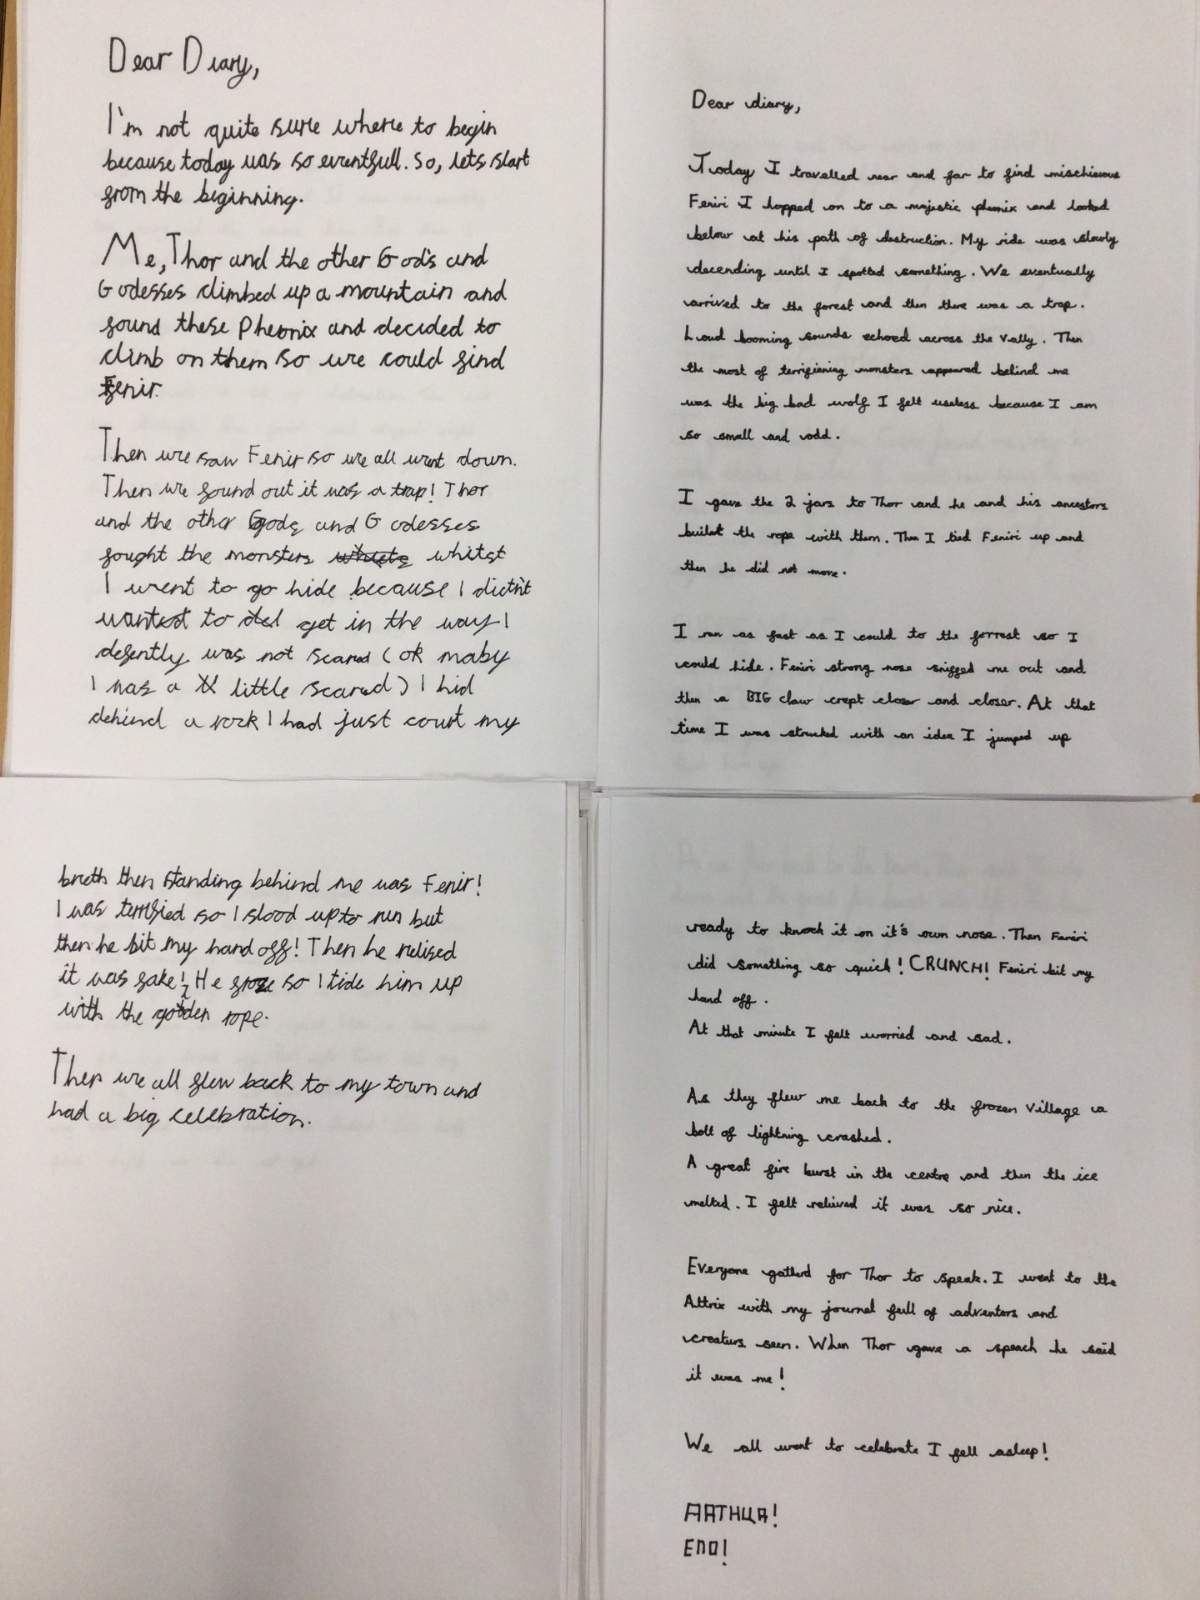 Dear Diary,
I'm not quite sure where to begin
because today was so eventfull. So, lets start
from the beginning.
Me, Thor and the other God's and
Godesses climbed up a mountain and
found these Pheonix and decided to
climb on them so we could find
Fenir.
Then we saw Fenir so we all went down.
Then we found out it was a trap! Thor
and the other Gods and Godesses
fought the monsters whitst
I went to go hide because I dictn't
wanted to get in the way I
defently was not scared (ok maby
I was a little scared) I hid
dehiend a rock I had just court my
breth then standing behind me was Fenir!
I was terrified so I stood up to run but
then he bit my hand off! Then he relised
it was fake! He froze so I tide him up
with the golden rope.
Then we all flew back to my town and
had a big celebration.
Dear diary,
Today I travelled near and far to find mischievous
Feniri I hopped on to a majestic pheonix and looked
below at his path of destruction. My ride was slowly
decending until I spotted something. We eventually
arrived to the forest and then there was a trap.
Loud booming sounds echoed across the vally. Then
the most of terrifiening monsters appeared behind me
was the big bad wolf I felt useless because I am
so small and odd.
I gave the 2 jars to Thor and he and his ancestors
builat the rope with them. Then I tied Feniri up and
then he did not move.
I ran as fast as I could to the forrest so I
could hide. Feniri strong nose sniffed me out and
then a BIG claw crept closer and closer. At that
time I was strucked with an idea I jumped up
ready to knock it on it's own nose. Then Feniri
did something so quick! CRUNCH! Feniri bit my
hand off.
At that minute I felt worried and sad.
As they flew me back to the frozen village a
bolt of lightning crashed.
A great fire burst in the centre and then the ice
melted. I felt relieved it was so nice.
Everyone gatherd for Thor to speak. I went to the
Attrix with my journal full of adventors and
creaturs seen. When Thor gave a speach he said
it was me!
We all went to celebrate I fell asleep!
ARTHUR!
END!